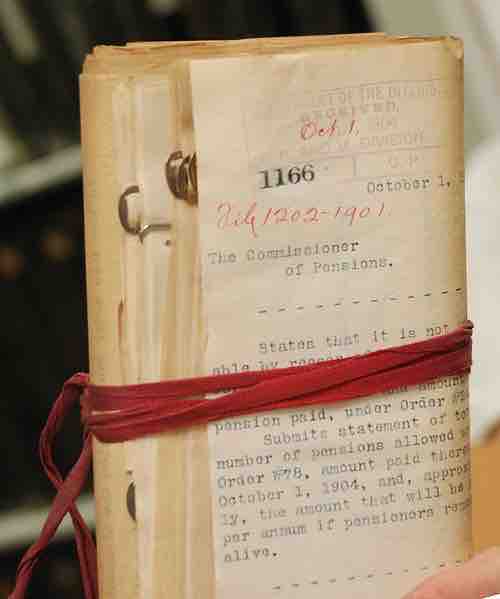 OF THE INTERIOR
RECEIVED,
Oct. 1, 190
DIVISION
1166 G. P.
October 1,
File 1202-1901.
The Commissioner
of Pensions.
States that it is not
able by reason of
and amount
pension paid, under Order #
Submits statement of
number of pensions allowed
Order #78, amount paid
October 1, 1904, and,
ly, the amount that will be
per annum if pensioners
alive.